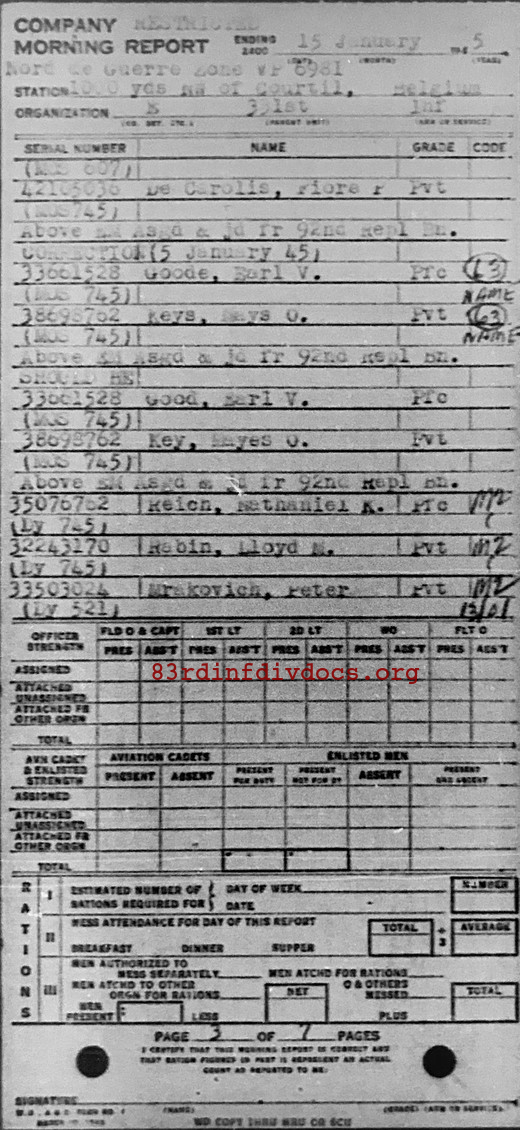 COMPANY RESTRICTED
MORNING REPORT ENDING 2400 15 January 194 5
(DATE) (MONTH) (YEAR)
Nord de Guerre Zone VP 6981
STATION 1000 yds NW of Courtil, Belgium
ORGANIZATION E 331st Inf
(CO. DET. ETC.) (PARENT UNIT) (ARM OR SERVICE)
SERIAL NUMBER NAME GRADE CODE
(MOS 607)
42105036 De Carolis, Fiore P Pvt
(MOS 745)
Above EM Asgd & jd fr 92nd Repl Bn.
CORRECTION (5 January 45)
33661528 Goode, Earl V. Pfc 63
(MOS 745) NAME
38698762 Keys, Mays O. Pvt 63
(MOS 745) NAME
Above EM Asgd & jd fr 92nd Repl Bn.
SHOULD BE
33661528 Good, Earl V. Pfc
(MOS 745)
38698762 Key, Mayes O. Pvt
(MOS 745)
Above EM Asgd & jd fr 92nd Repl Bn.
35076762 Reich, Nathaniel K. Pfc M2
(Dy 745)
32243170 Rabin, Lloyd M. Pvt M2
(Dy 745)
33503024 Mrakovich, Peter Pvt M2
(Dy 521)
OFFICER STRENGTH FLD O & CAPT 1ST LT 2D LT WO FLT O
PRES ABS'T PRES ABS'T PRES ABS'T PRES ABS'T PRES ABS'T
ASSIGNED
83rdinfdivdocs.org
ATTACHED UNASSIGNED
ATTACHED FR OTHER ORGN
TOTAL
AVN CADET & ENLISTED STRENGTH AVIATION CADETS ENLISTED MEN
PRESENT ABSENT PRESENT FOR DUTY PRESENT NOT FOR DY ABSENT PRESENT AND ABSENT
ASSIGNED
ATTACHED UNASSIGNED
ATTACHED FR OTHER ORGN
TOTAL
RATIONS
I ESTIMATED NUMBER OF RATIONS REQUIRED FOR DAY OF WEEK DATE NUMBER
II MESS ATTENDANCE FOR DAY OF THIS REPORT TOTAL ÷ 3 AVERAGE
BREAKFAST DINNER SUPPER
III MEN AUTHORIZED TO MESS SEPARATELY MEN ATCHD FOR RATIONS
MEN ATCHD TO OTHER ORGN FOR RATIONS NET O & OTHERS MESSED TOTAL
MEN PRESENT LESS PLUS
PAGE 3 OF 7 PAGES
I CERTIFY THAT THIS MORNING REPORT IS CORRECT AND
THAT RATION FIGURES IN PART III REPRESENT AN ACTUAL
COUNT AS REPORTED TO ME.
SIGNATURE
(NAME) (GRADE) (ARM OR SERVICE)
WD COPY THRU MRU OR SCU